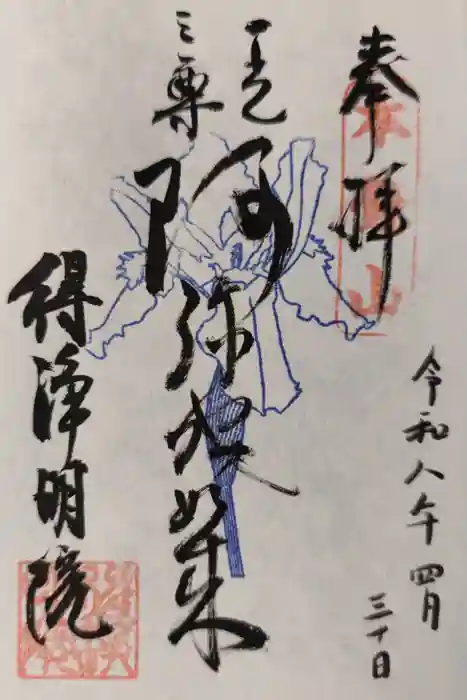 奉拝
令和八年四月
三十日
一光
三尊
阿弥陀如来
得浄明院